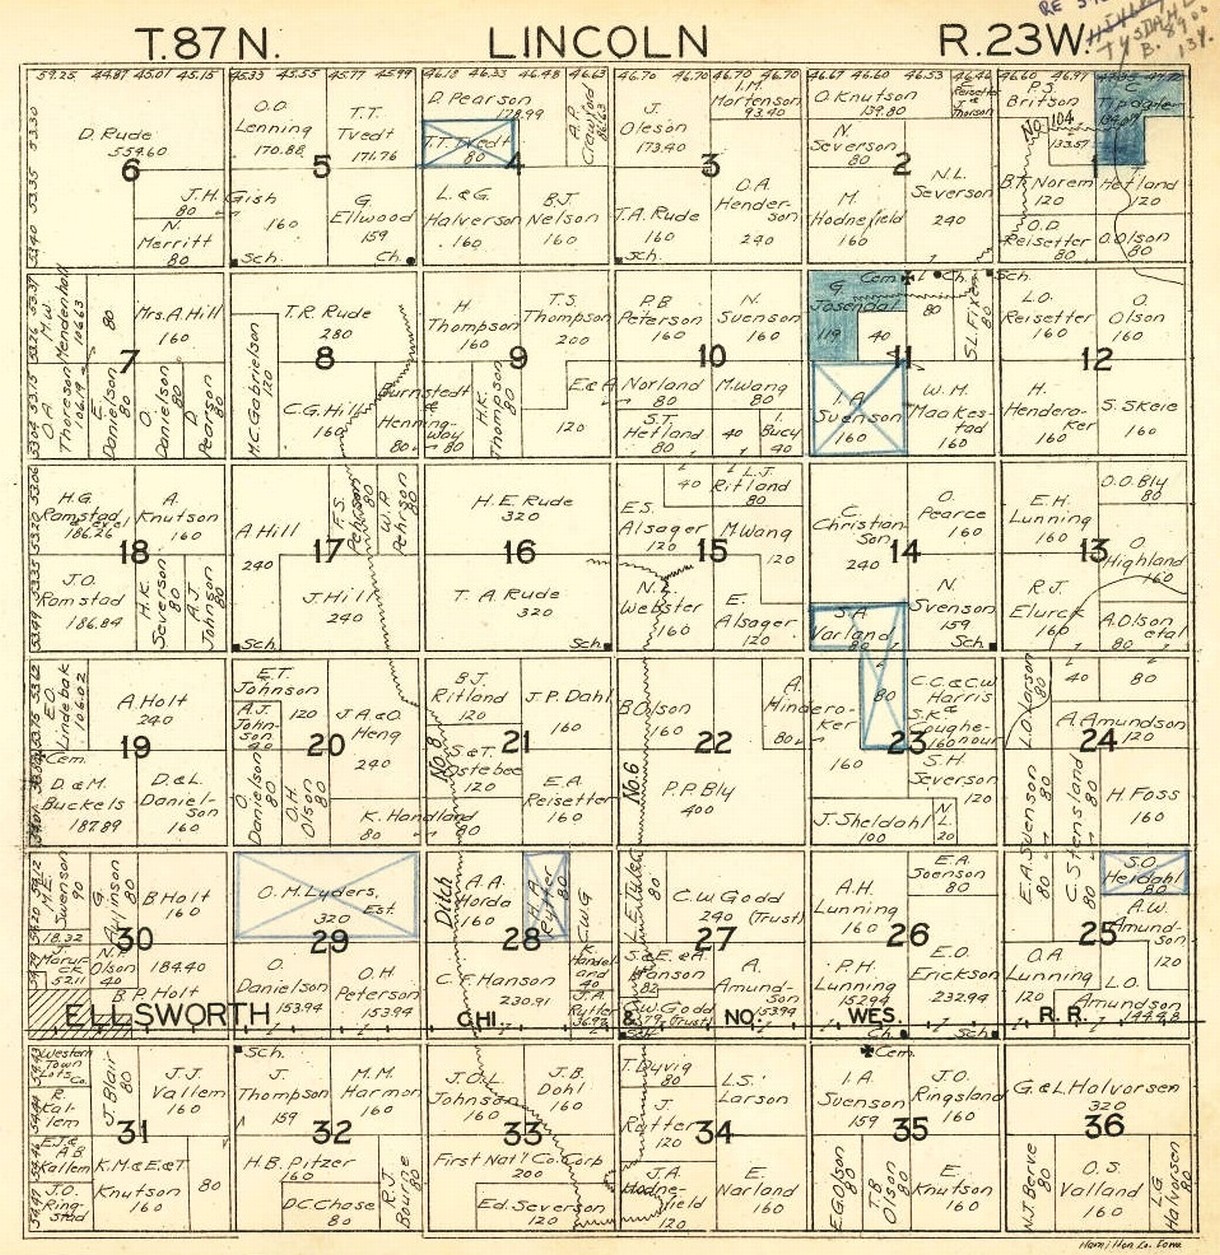 T.87 N. LINCOLN R.23W.
59.25 44.87 45.01 45.15 45.33 45.55 45.77 45.99 46.18 46.33 46.48 46.63 46.70 46.70 46.70 46.70 46.67 46.60 46.53 46.46 46.60 46.97
D. Rude
559.60
6
J.H. Gish
80
160
N.
Merritt
80
O.O.
Lenning
170.88
T.T.
Tvedt
171.76
5
G.
Ellwood
159
Sch.
Ch.
D. Pearson
178.99
T.T. Tvedt
80
A.P.
Crawford
86.63
4
L. & G.
Halverson
160
B.J.
Nelson
160
J.
Oleson
173.40
I.M.
Mortenson
93.40
3
T.A. Rude
160
Sch.
O.A.
Hender-
son
240
O. Knutson
139.80
N.
Severson
80
2
M.
Hodnefield
160
N.L.
Severson
240
P.S.
Britson
No. 104
133.57
C.
Tipdahl
1
B.T. Norem
120
Hetland
120
O.D.
Reisetter
80
O. Olson
80
M.W.
Mendenhall
106.63
80
Mrs. A. Hill
160
7
O.A.
Thoreson
106.19
E.
Danielson
80
O.
Danielson
80
D.
Pearson
80
T.R. Rude
280
8
M.C. Gabrielson
120
C.G. Hill
160
Burnstedt
&
Henning-
way
80
80
H.
Thompson
160
T.S.
Thompson
200
9
H.K.
Thompson
80
E. & A.
120
P.B.
Peterson
160
N.
Svenson
160
10
Norland
M. Wang
80
S.T.
Hetland
80
40
I.
Bucy
40
G.
Josendal
119
40
Cem.
Ch.
80
S.L. Fixen
80
11
I.A.
Svenson
160
W.M.
Maakes-
tad
160
Sch.
L.O.
Reisetter
160
O.
Olson
160
12
H.
Hendera-
ker
160
S. Skeie
160
H.G.
Ramstad
186.26
A.
Knutson
160
18
J.O.
Ramstad
186.84
H.K.
Severson
80
A.J.
Johnson
80
A. Hill
240
F.S.
Pehrson
80
W.P.
Pehrson
80
17
J. Hill
240
Sch.
H.E. Rude
320
16
T. A. Rude
320
Sch.
E.S.
Alsager
120
40
L.J.
Ritland
80
M. Wang
120
15
N.L.
Webster
160
E.
Alsager
120
C.
Christian-
son
240
O.
Pearce
160
14
S.A.
Varland
80
N.
Svenson
159
Sch.
E.H.
Lunning
160
O.O. Bly
80
13
O.
Highland
160
R.J.
Elurck
160
A. Olson
etal
80
E.O.
Lindebak
106.02
A. Holt
240
19
Cem.
D. & M.
Buckels
187.89
D. & L.
Daniel-
son
160
E.T.
Johnson
120
A.J.
John-
son
40
J A & O
Heng
240
20
O.
Danielson
80
O.H.
Olson
80
K. Handland
80
80
B.J.
Ritland
120
J.P. Dahl
160
No. 8
21
S. & T.
Ostebee
120
E.A.
Reisetter
160
B. Olson
160
A.
Hindero-
ker
80
160
22
No. 6
P.P. Bly
400
80
C.C. & C.W.
Harris
S.K. &
Coughe-
nour
160
23
S.H.
Severson
120
J. Sheldahl
100
N.
L.
20
L.O. Larson
80
40
80
A. Amundson
120
24
E.A. Svenson
80
80
C. Stensland
80
80
H. Foss
160
M.E.
Swenson
90
G.
Rawlinson
80
B. Holt
160
30
18.32
52.11
N.T.
Olson
40
184.40
B. P. Holt
ELLSWORTH
O. M. Lyders,
320 Est.
29
O.
Danielson
153.94
O.H.
Peterson
153.94
Ditch
A.A.
Horda
160
H.A.
Rutter
80
C.W.G.
28
C.F. Hanson
230.91
J.A.
Rutter
36.97
80
C.W. Godd
240 (Trust)
27
E. & A.
Hanson
82
A.
Amund-
son
153.94
C.W. Godd
79 (Trust)
A.H.
Lunning
160
E.A.
Soenson
80
26
P.H.
Lunning
152.94
E.O.
Erickson
232.94
S.O.
Heidahl
80
A.W.
Amund-
son
120
25
O.A.
Lunning
120
L.O.
Amundson
144.98
CHI. & NO. WES. R. R.
Sch.
Ch.
Sch.
Western
Town
Lots Co.
R.
Kal-
lem
J. Blair
80
J.J.
Vallem
160
31
E.J. &
A.B.
Kallem
K.M & E. & T.
Knutson
160
80
J.O.
Ring-
stad
Sch.
J.
Thompson
159
M.M.
Harmon
160
32
H.B. Pitzer
160
D.C. Chase
80
R.J.
Bourne
80
J.O.L.
Johnson
160
J.B.
Dahl
160
33
First Nat'l Co. Corp
200
Ed. Severson
120
T. Dyvig
80
J.
Rutter
120
L.S.
Larson
160
34
J.A.
Hodne-
field
120
E.
Narland
160
Cem.
I.A.
Svenson
159
J.O.
Ringsland
160
35
E.G. Olson
80
T.B
Olson
80
E.
Knutson
160
G. & L. Halvorsen
320
36
N.J. Berve
80
O.S.
Valland
160
L.G.
Halvorsen
80
Hamilton Co. Iowa